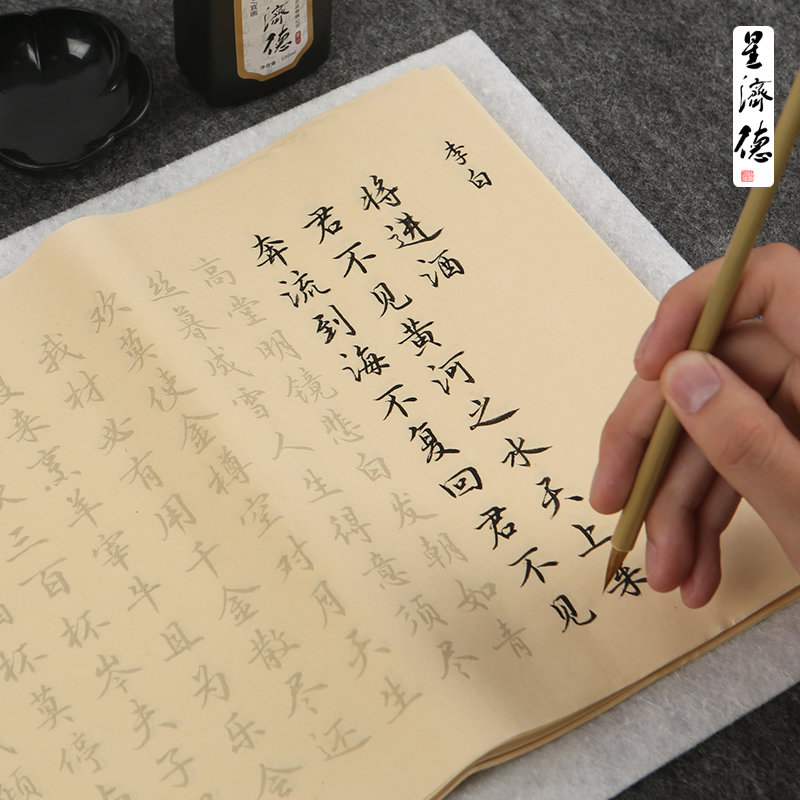 星濟德
濟德
李白
将进酒
君不见黄河之水天上来
奔流到海不复回君不见
高堂明镜悲白发朝如青
丝暮成雪人生得意须尽
欢莫使金樽空对月天生
我材必有用千金散尽还
来烹羊宰牛且为乐会
三百杯岑夫子
杯莫停
倾